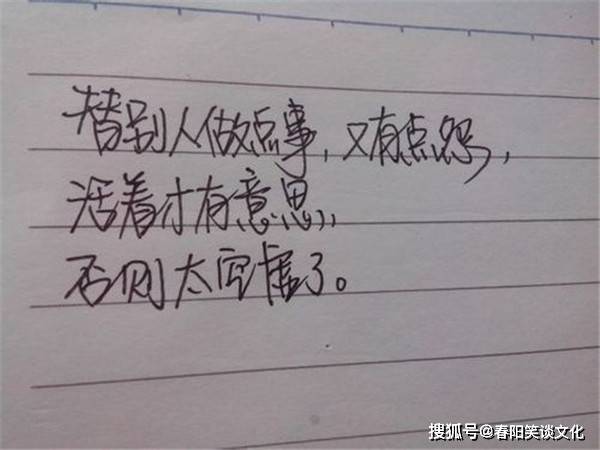 替别人做点事，又有点怨，
活着才有意思，
否则太空虚了。
搜狐号@春阳笑谈文化